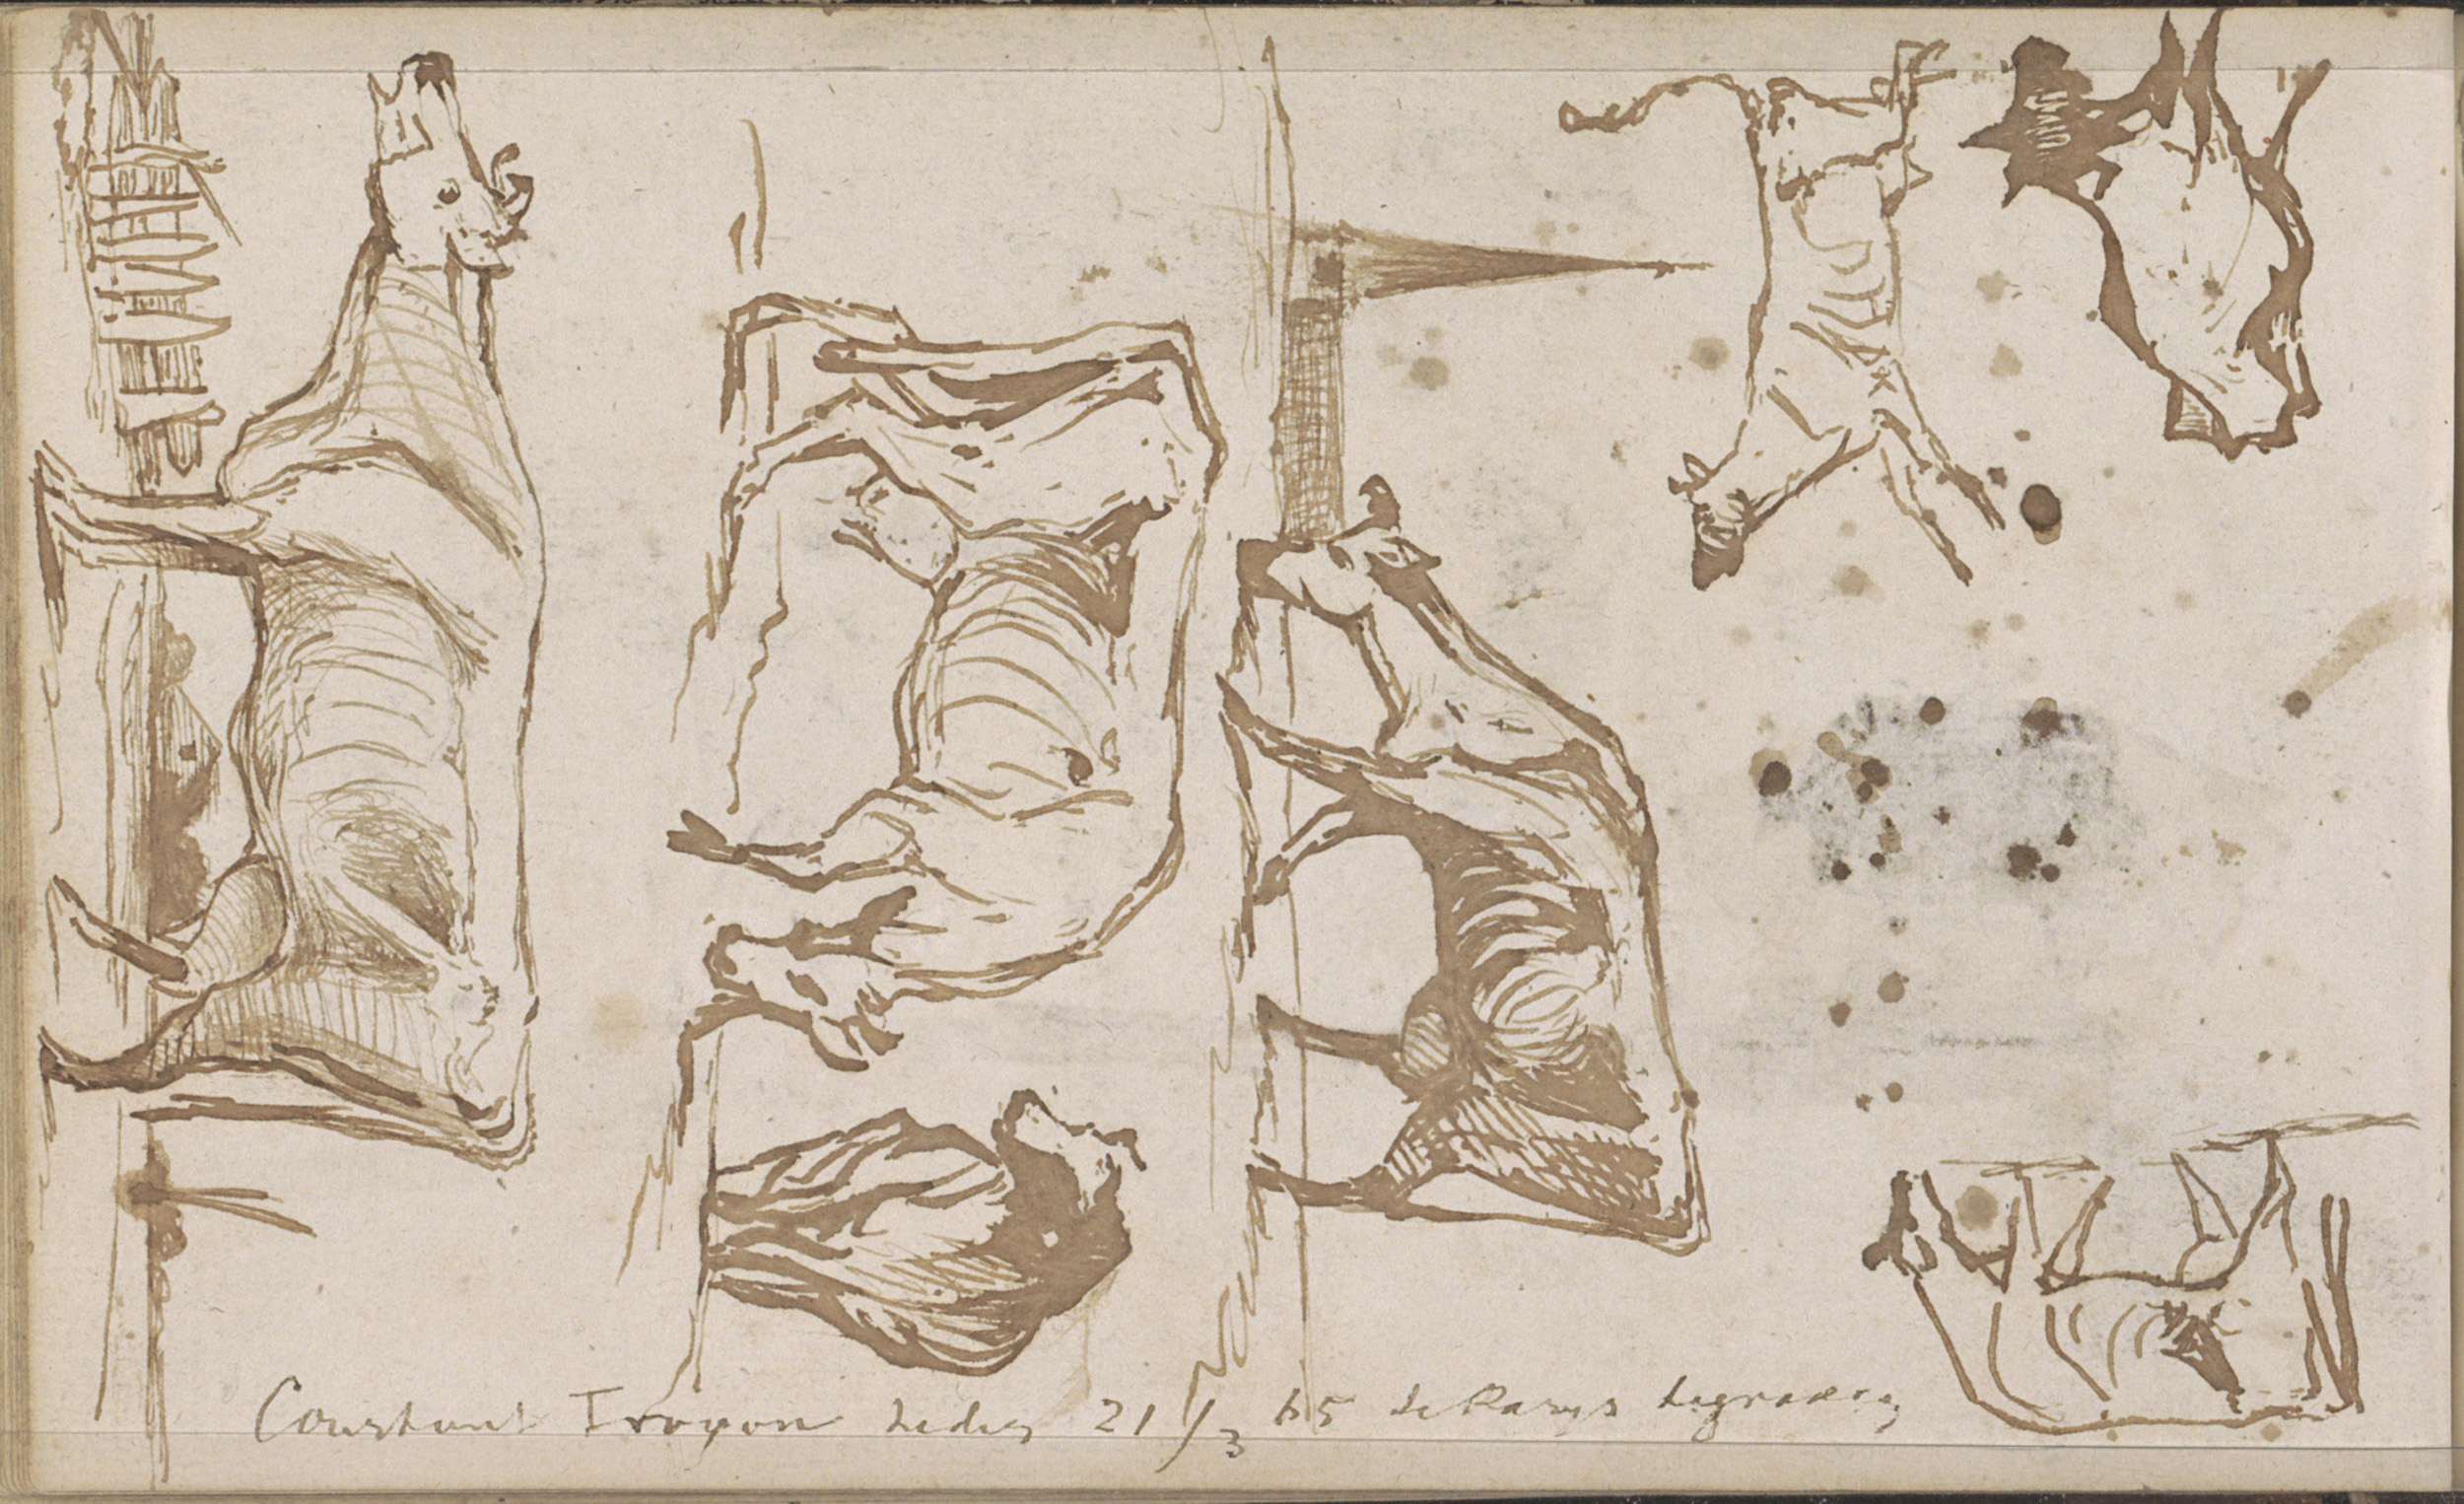 Constant Troyon heden 21/3 65 te Parys begraven